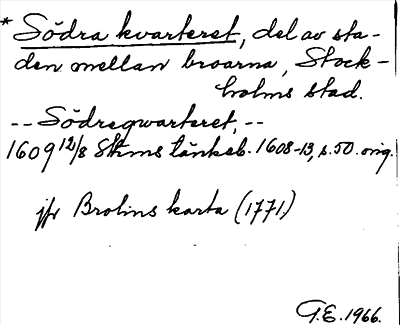 * Södra kvarteret, del av sta-
den mellan broarna, Stock-
holms stad.
-- Södregwarteret, --
1609 12/8 Sthms tänkeb. 1608-13, s. 50. orig.
jfr Brolins karta (1771)
G.E. 1966.